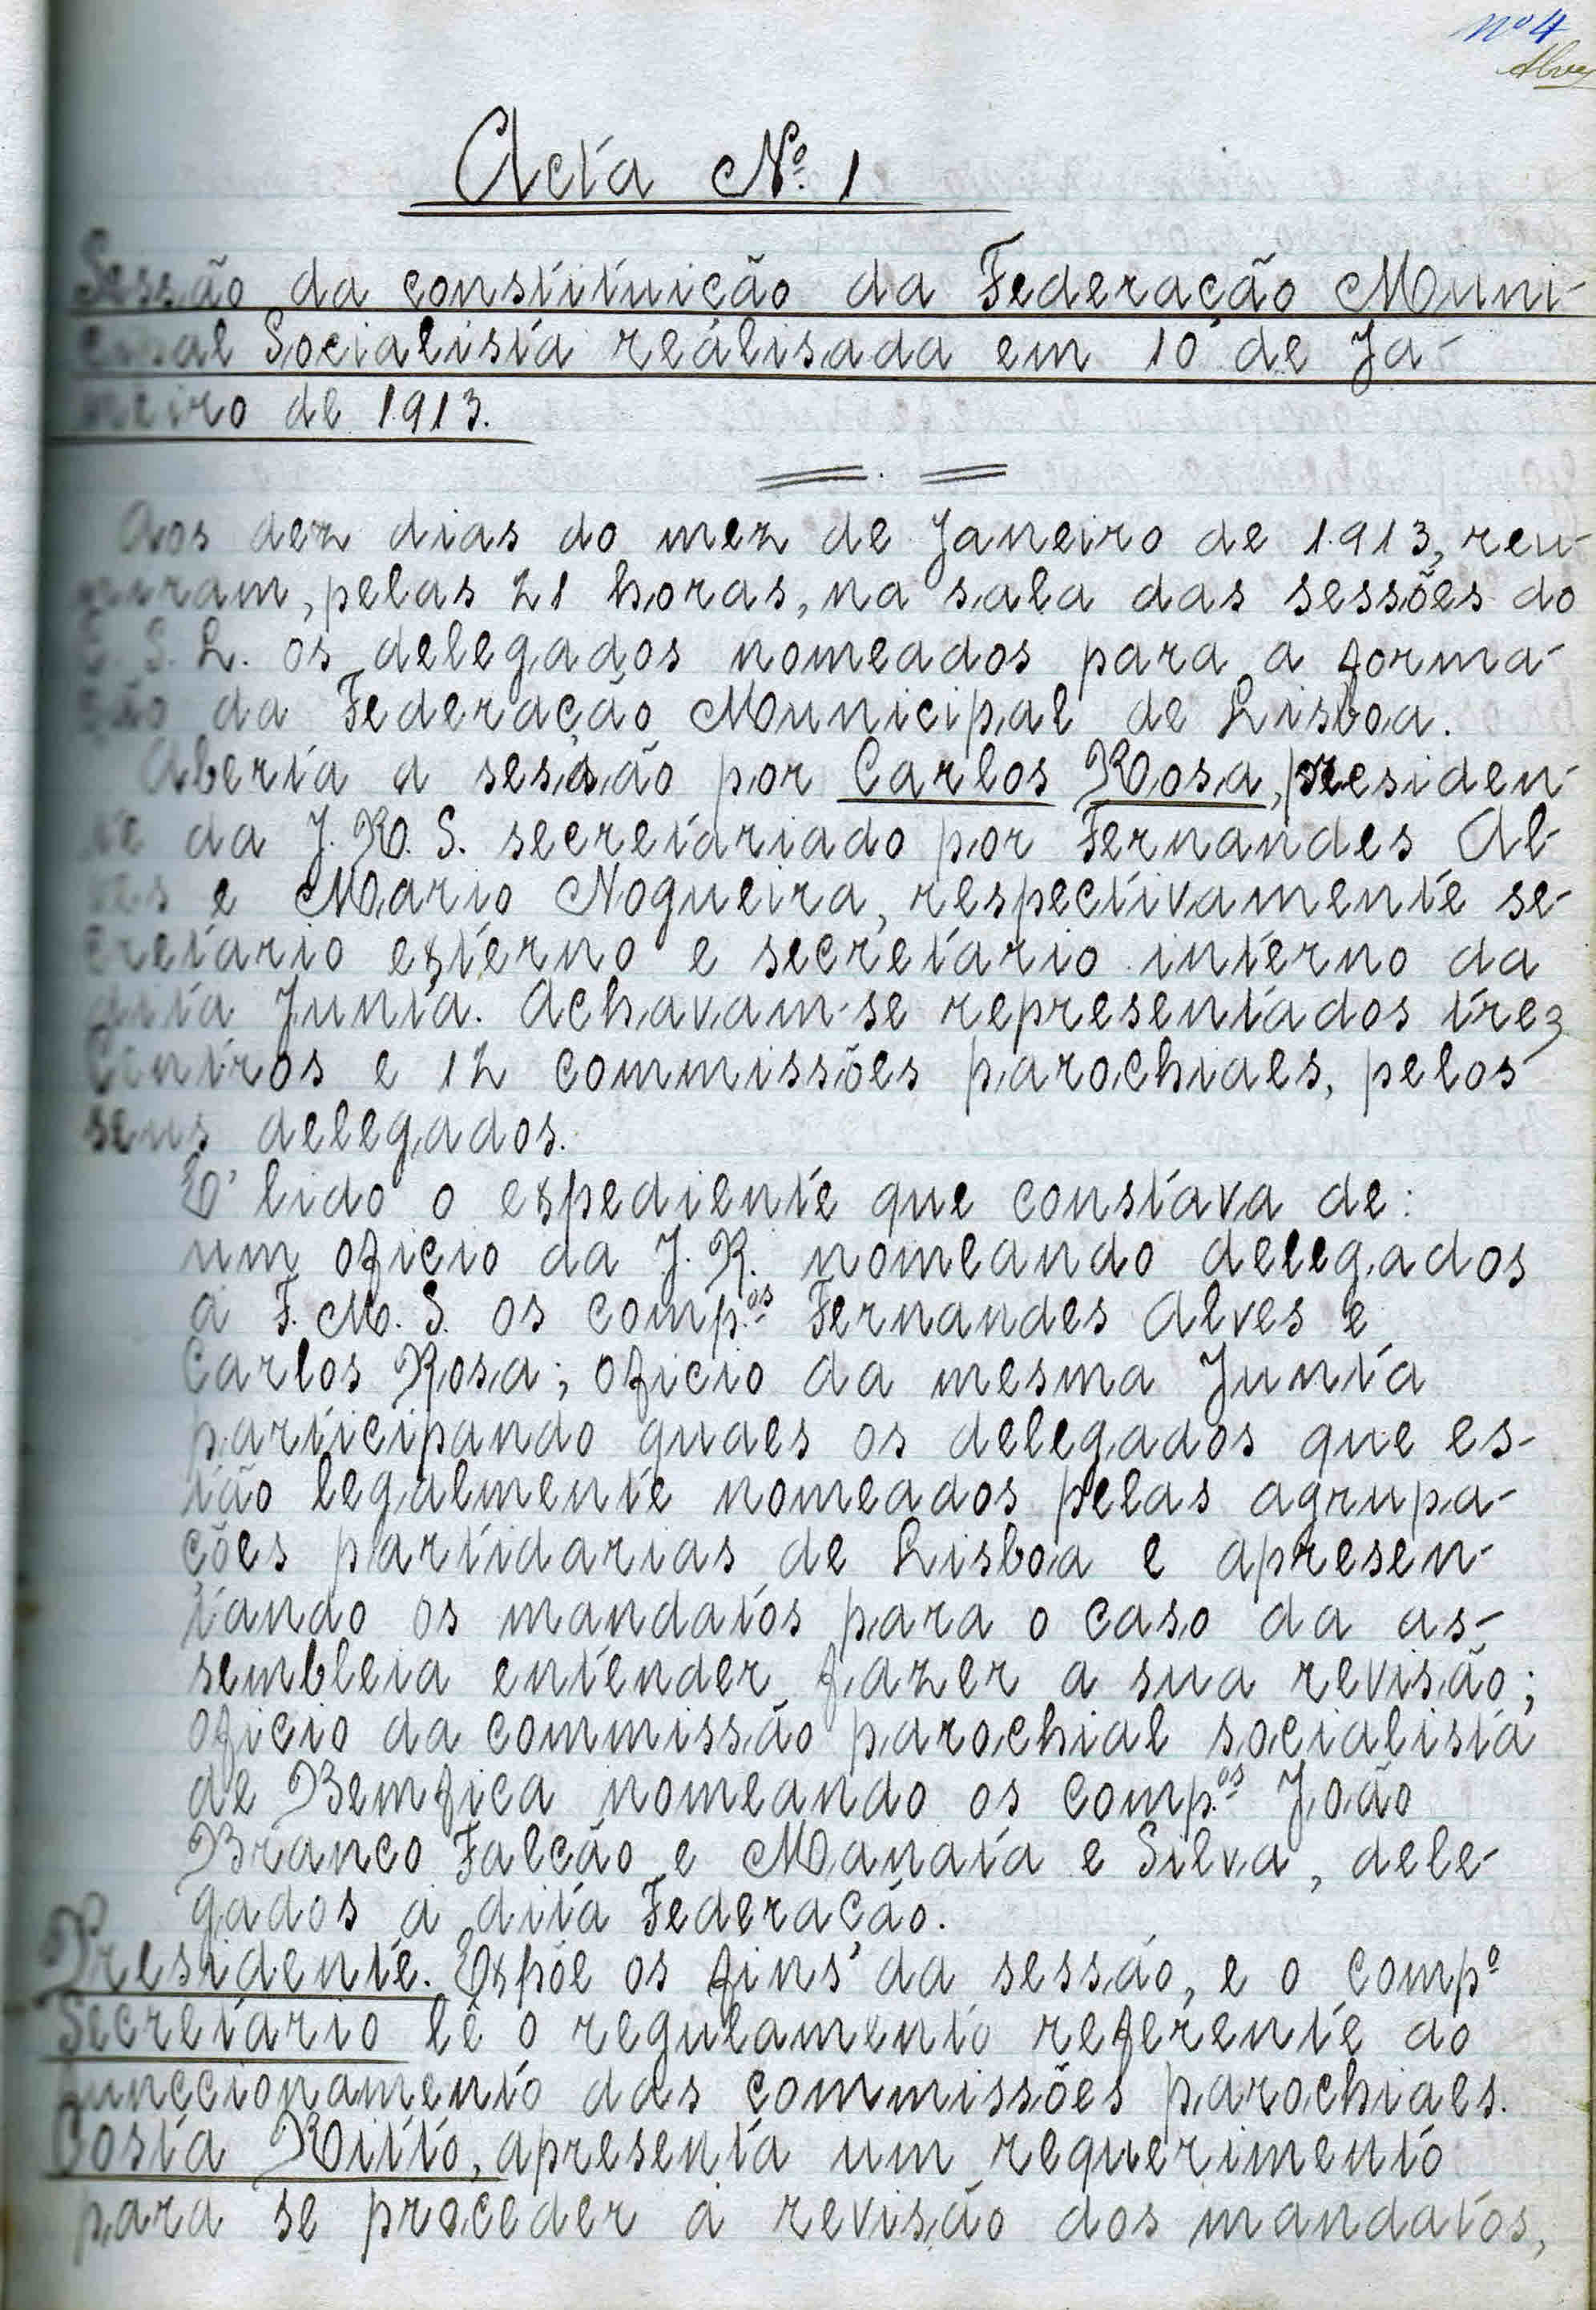 nº 4
Alves
Acta Nº. 1
Sessão da constituição da Federação Muni-
cipal Socialista reálisada em 10 de Ja-
neiro de 1913.
Aos dez dias do mez de Janeiro de 1913, reu-
niram, pelas 21 horas, na sala das sessões do
C. S. L. os delegados nomeados para a forma-
ção da Federação Municipal de Lisboa.
Aberta a sessão por Carlos Rosa, presiden-
te da J. R. S. secretariado por Fernandes Al-
ves e Mario Nogueira, respectivamente se-
cretario esterno e secretario interno da
dita Junta. Achavam-se representados trez
Centros e 12 commissões parochiaes, pelos
seus delegados.
E' lido o espediente que constava de:
um oficio da J. R. nomeando delegados
á F. M. S. os comp.os Fernandes Alves e
Carlos Rosa; oficio da mesma Junta
participando quaes os delegados que es-
tão legalmente nomeados pelas agrupa-
ções partidarias de Lisboa e apresen-
tando os mandatos para o caso da as-
sembleia entender fazer a sua revisão;
oficio da commissão parochial socialista
de Bemfica nomeando os comp.os João
Branco Falcão e Manata e Silva, dele-
gados á dita Federação.
Presidente. Espõe os fins da sessão, e o compº
Secretario lê o regulamento referente ao
funccionamento das commissões parochiaes.
Costa Ritto, apresenta um requerimento
para se proceder á revisão dos mandatos,